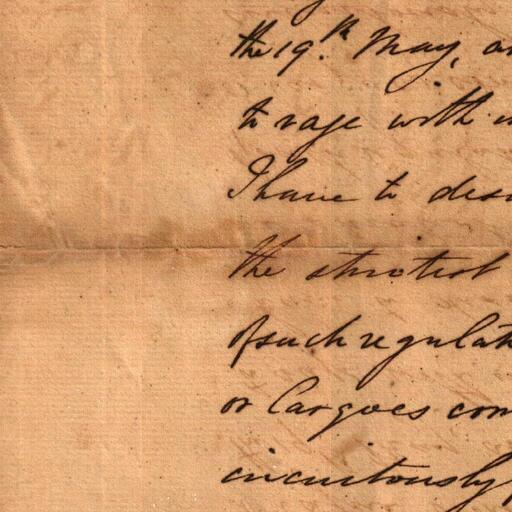 the 19th May, an
to rage with u
I have to desi
the strictest
of such regulati
or Cargoes com
circuitously